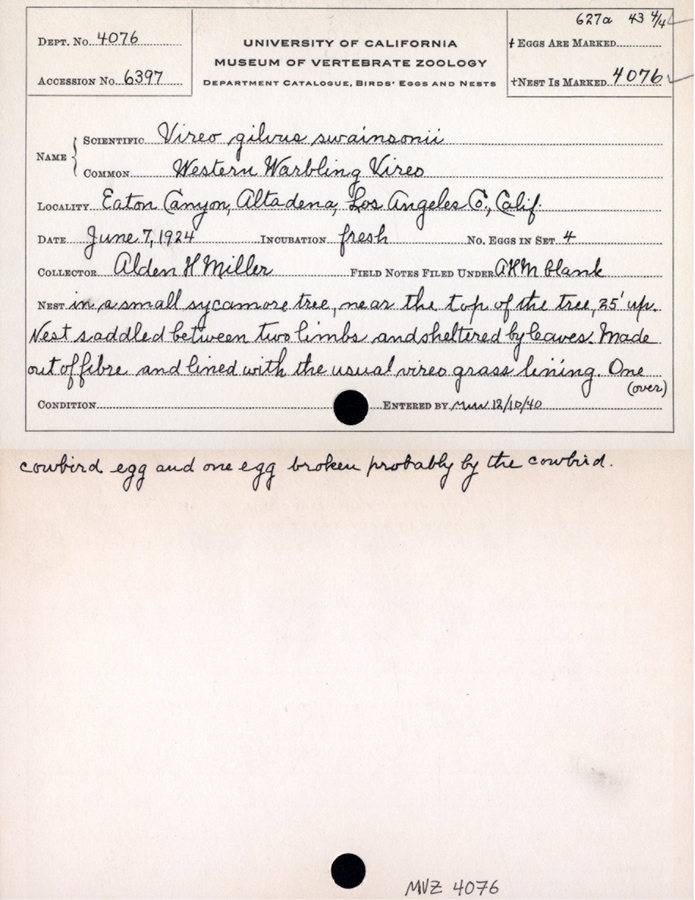 627a 43 4/4
Dept. No. 4076
Accession No. 6397
UNIVERSITY OF CALIFORNIA
MUSEUM OF VERTEBRATE ZOOLOGY
Department Catalogue, Birds' Eggs and Nests
† Eggs Are Marked
† Nest Is Marked 4076
Name { Scientific Vireo gilvus swainsonii
Common Western Warbling Vireo
Locality Eaton Canyon, Altadena, Los Angeles Co., Calif.
Date June 7, 1924 Incubation fresh No. Eggs in Set 4
Collector Alden H Miller Field Notes Filed Under AHM blank
Nest in a small sycamore tree, near the top of the tree, 25' up.
Nest saddled between two limbs and sheltered by leaves. Made
out of fibre and lined with the usual vireo grass lining. One
(over)
Condition Entered by 12/10/40
cowbird egg and one egg broken probably by the cowbird.
MVZ 4076